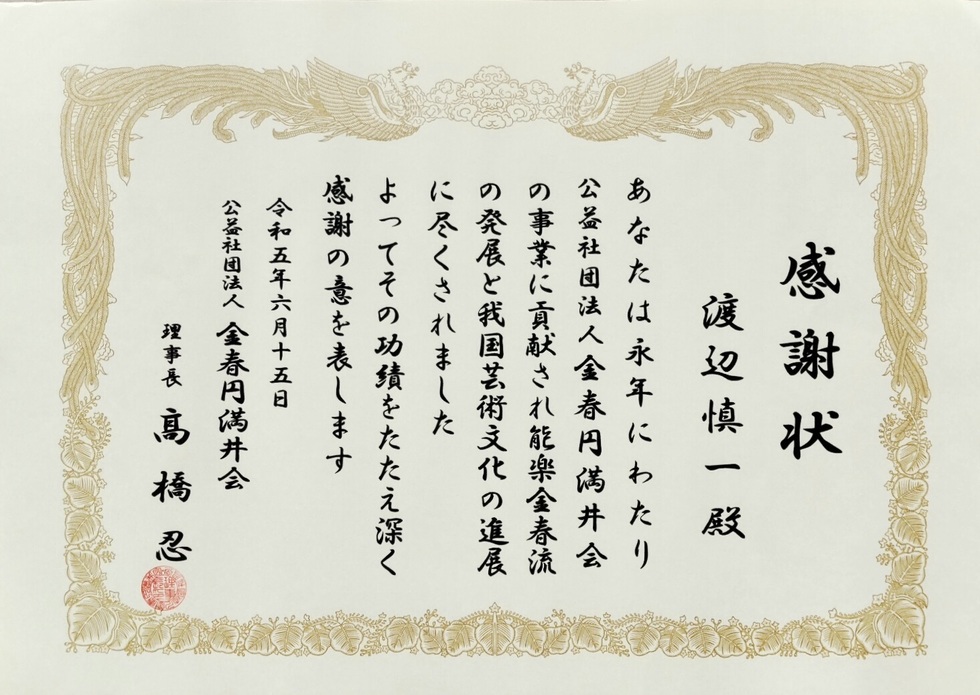 感謝状
渡辺慎一殿
あなたは永年にわたり
公益社団法人金春円満井会
の事業に貢献され能楽金春流
の発展と我国芸術文化の進展
に尽くされました
よってその功績をたたえ深く
感謝の意を表します
令和五年六月十五日
公益社団法人 金春円満井会
理事長 高橋忍